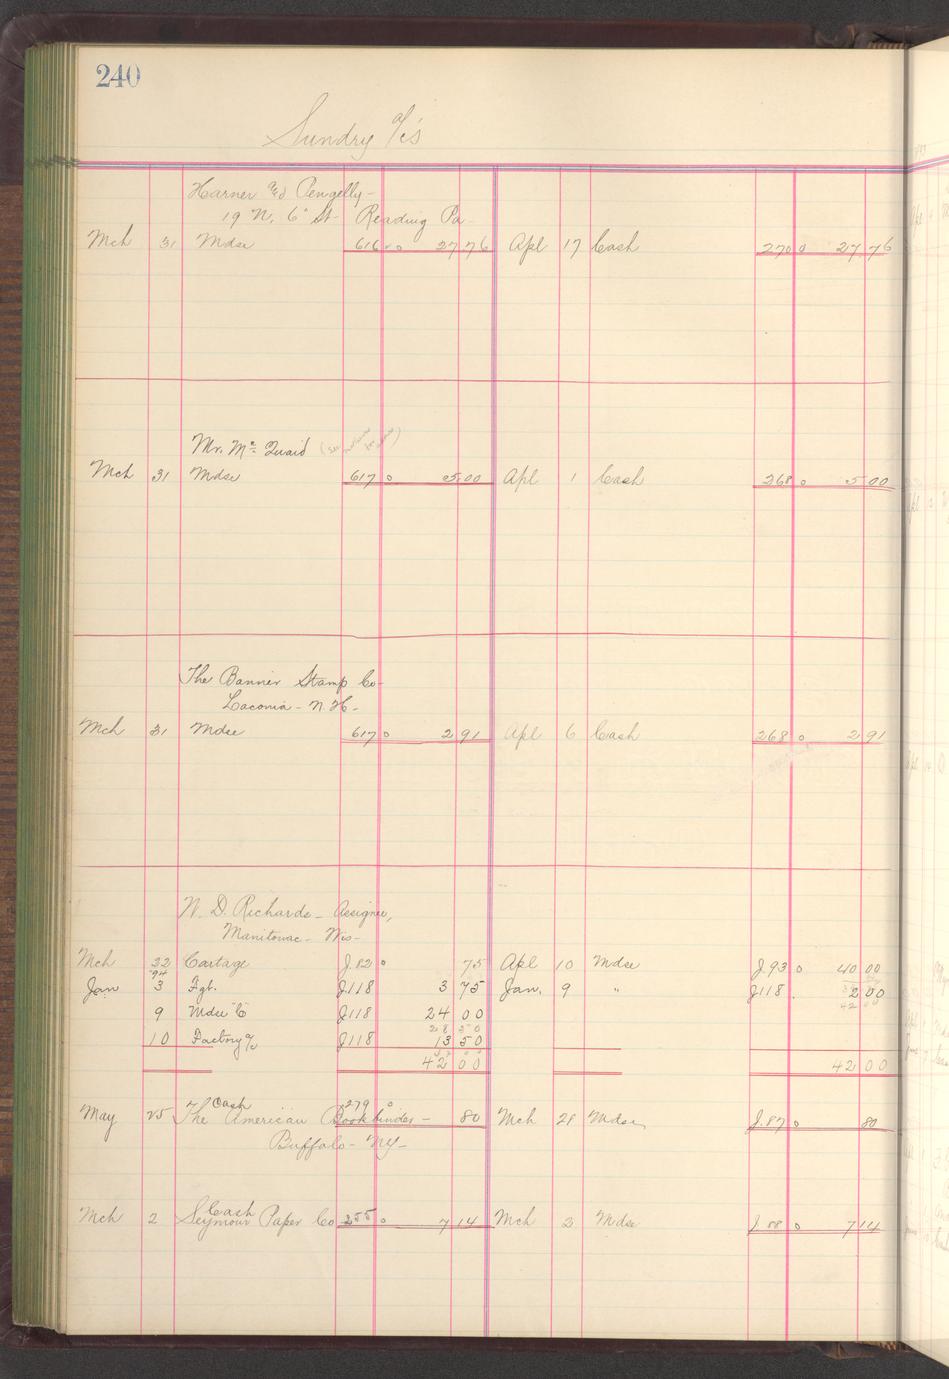 240
Sundry a/c's
Harner and Pengelly-
19 N. 6" St- Reading Pa-
Mch 31 Mdse 616 o 27 76 Apl 17 Cash 270 o 27 76
Mr. Mc Quaid (see
Mch 31 Mdse 617 o 5.00 Apl 1 Cash 268 o 5 00
The Banner Stamp Co-
Laconia- N. H-
Mch 31 Mdse 617 o 2 91 Apl 6 Cash 268 o 2 91
W. D. Richards- Assignee,
Manitowac- Wis-
Mch 22 Cartage J.82 o 75 Apl 10 Mdse J.93 o 40 00
94
Jan 3 Fgt. J118 3 75 Jan. 9 " J118 . 2 00
42
9 Mdse C J118 24 00
28 50
10 Factory a/c J118 13 50
42 00 42 00
Cash 279 o
May 25 The American Bookbinder- 80 Mch 28 Mdse J.87 o 80
Buffalo- NY-
Cash
Mch 2 Seymour Paper Co 255 o 7 14 Mch 3 Mdse J 88 o 7 14